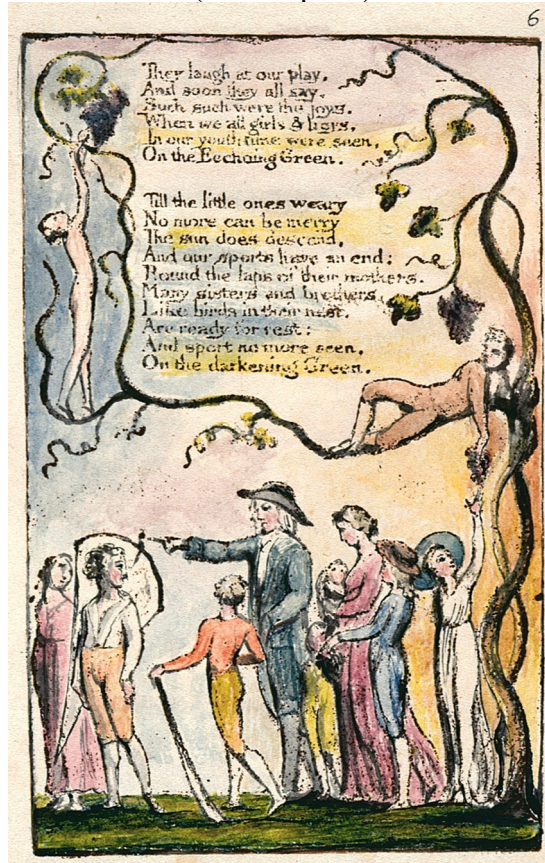 6
They laugh at our play,
And soon they all say.
Such such were the joys.
When we all girls & boys,
In our youth time were seen,
On the Ecchoing Green.
Till the little ones weary
No more can be merry
The sun does descend,
And our sports have an end:
Round the laps of their mothers,
Many sisters and brothers,
Like birds in their nest,
Are ready for rest:
And sport no more seen,
On the darkening Green.